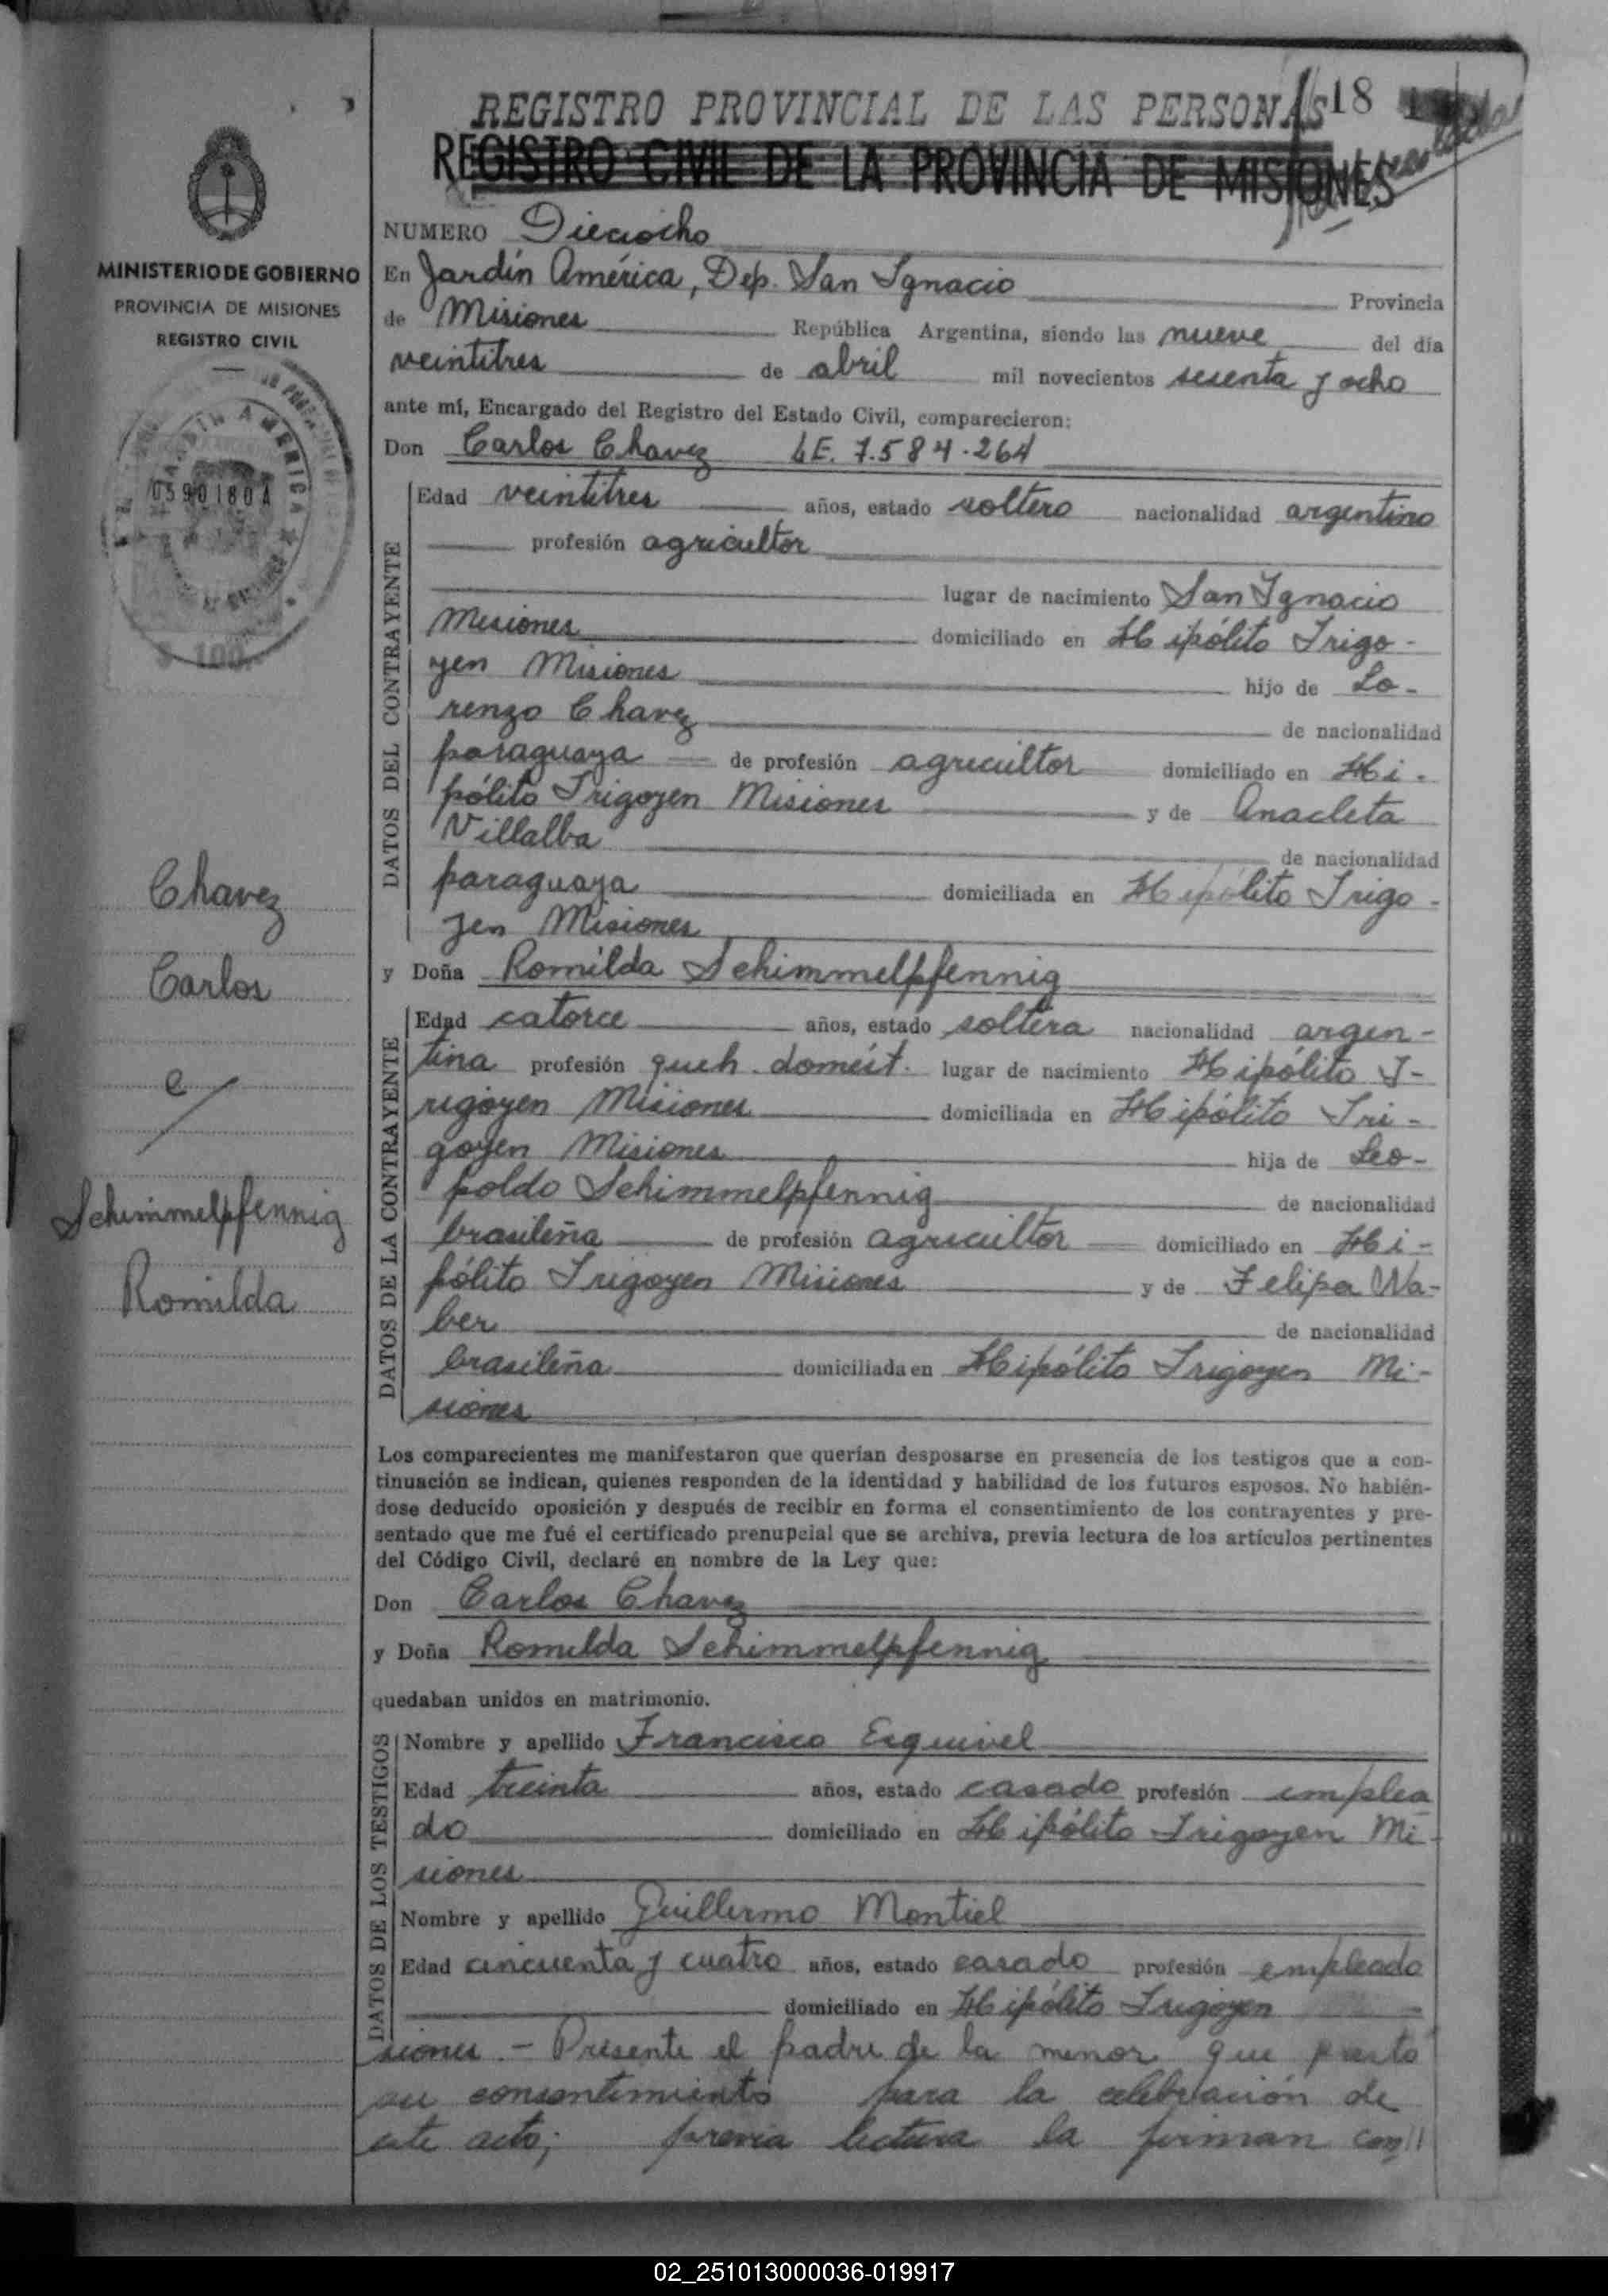 REGISTRO PROVINCIAL DE LAS PERSONAS 18
REGISTRO CIVIL DE LA PROVINCIA DE MISIONES
MINISTERIO DE GOBIERNO
PROVINCIA DE MISIONES
REGISTRO CIVIL
JARDIN AMERICA
0590180A
$ 100
Chavez
Carlos
e/
Schimmelpfennig
Romilda
NUMERO Dieciocho
En Jardín América, Dep. San Ignacio Provincia
de Misiones República Argentina, siendo las nueve del día
veintitres de abril mil novecientos sesenta y ocho
ante mí, Encargado del Registro del Estado Civil, comparecieron:
Don Carlos Chavez LE. 7.584.264
DATOS DEL CONTRAYENTE
Edad veintitres años, estado soltero nacionalidad argentino
profesión agricultor
lugar de nacimiento San Ignacio
Misiones domiciliado en Hipólito Irigo-
yen Misiones hijo de Lo-
renzo Chavez de nacionalidad
paraguaya de profesión agricultor domiciliado en Hi-
pólito Irigoyen Misiones y de Anacleta
Villalba de nacionalidad
paraguaya domiciliada en Hipólito Irigo-
yen Misiones
y Doña Romilda Schimmelpfennig
DATOS DE LA CONTRAYENTE
Edad catorce años, estado soltera nacionalidad argen-
tina profesión queh. domést. lugar de nacimiento Hipólito I-
rigoyen Misiones domiciliada en Hipólito Iri-
goyen Misiones hija de Leo-
poldo Schimmelpfennig de nacionalidad
brasileña de profesión agricultor domiciliado en Hi-
pólito Irigoyen Misiones y de Felipa Wa-
ber de nacionalidad
brasileña domiciliada en Hipólito Irigoyen Mi-
siones
Los comparecientes me manifestaron que querían desposarse en presencia de los testigos que a con-
tinuación se indican, quienes responden de la identidad y habilidad de los futuros esposos. No habién-
dose deducido oposición y después de recibir en forma el consentimiento de los contrayentes y pre-
sentado que me fué el certificado prenupcial que se archiva, previa lectura de los artículos pertinentes
del Código Civil, declaré en nombre de la Ley que:
Don Carlos Chavez
y Doña Romilda Schimmelpfennig
quedaban unidos en matrimonio.
DATOS DE LOS TESTIGOS
Nombre y apellido Francisco Esquivel
Edad treinta años, estado casado profesión emplea
do domiciliado en Hipólito Irigoyen Mi-
siones
Nombre y apellido Guillermo Montiel
Edad cincuenta y cuatro años, estado casado profesión empleado
domiciliado en Hipólito Irigoyen
siones.- Presente el padre de la menor que presta
su consentimiento para la celebración de
este acto; previa lectura la firman con//
02_251013000036-019917